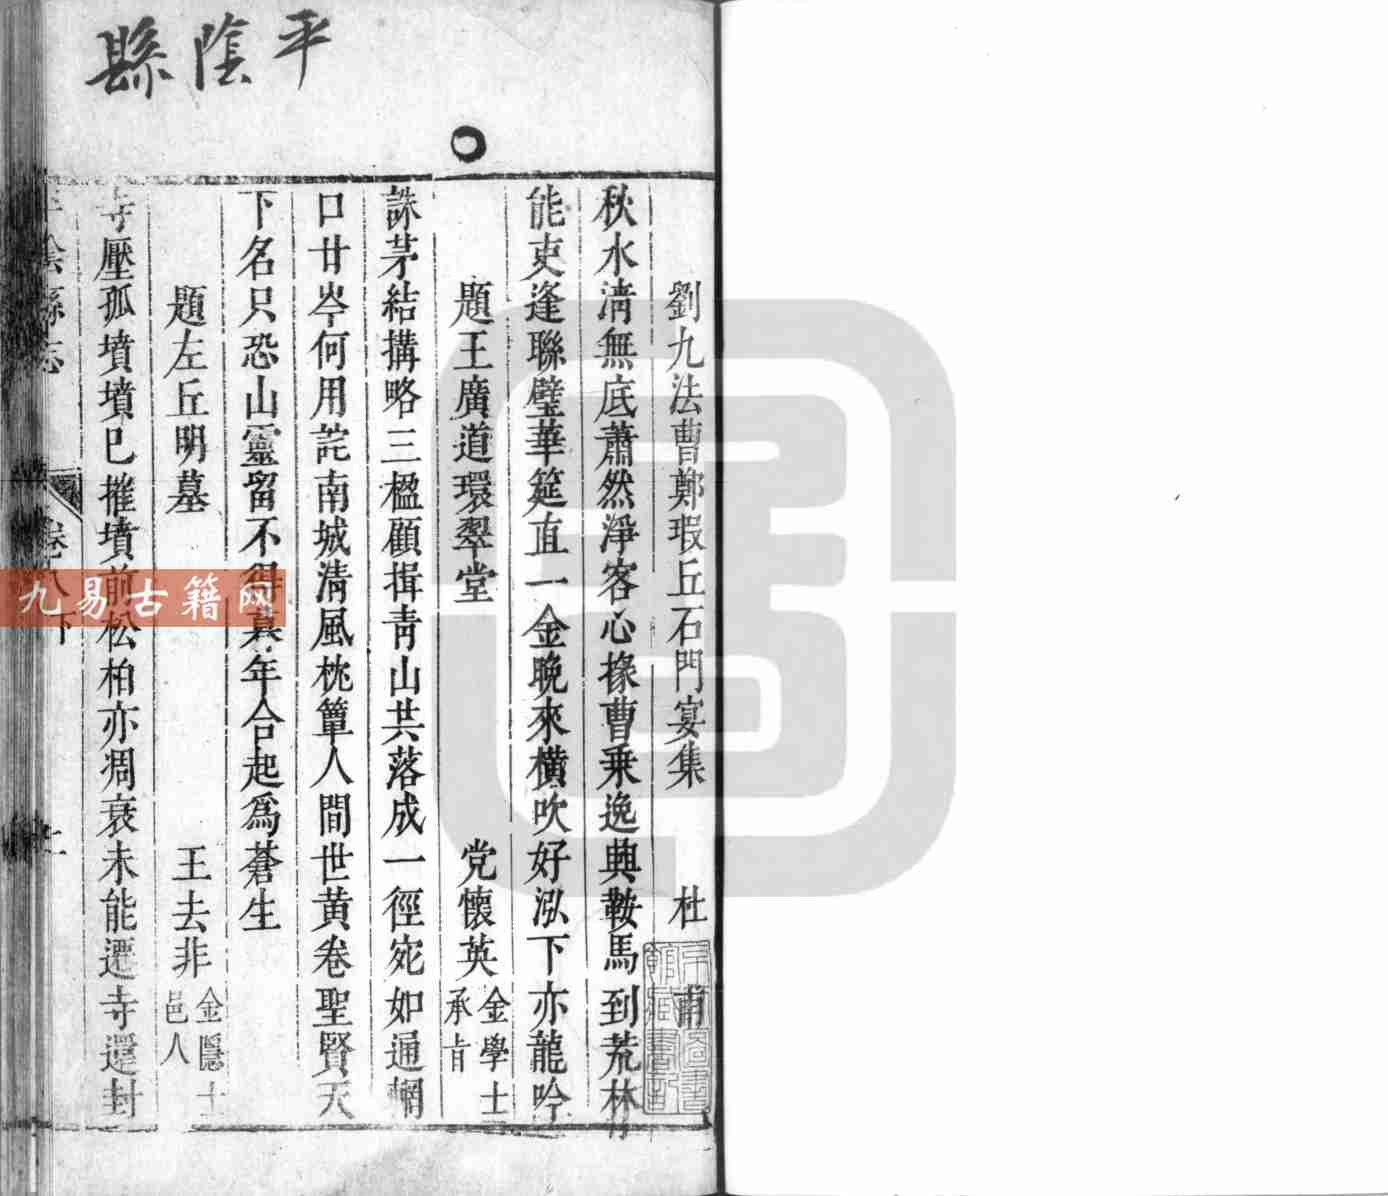 平陰縣
劉九法曹鄭瑕丘石門宴集　杜甫
秋水清無底蕭然淨客心掾曹乗逸興鞍馬到荒林
能吏逢聯璧華筵直一金晚來橫吹好泓下亦龍吟
題王廣道環翠堂　党懷英金學士承旨
誅茅結搆略三楹顧揖青山共落成一徑宛如通輞
口廿岑何用詫南城清風枕簟人間世黄卷聖賢天
下名只恐山靈留不得 年合起爲蒼生
題左丘明墓　王去非金隱士邑人
寺壓孤墳墳已摧墳前松柏亦凋衰未能遷寺還封
平陰縣志　卷八下
九易古籍网